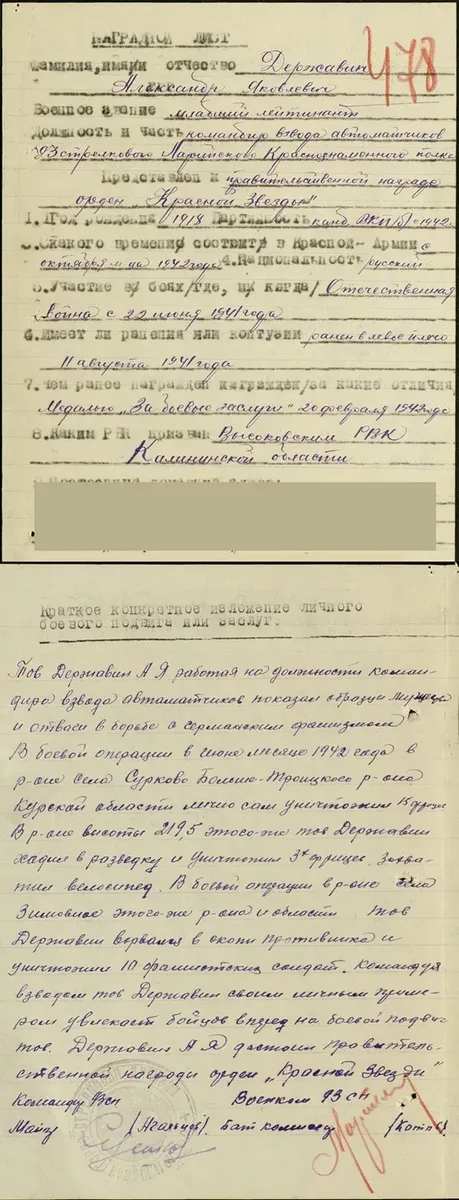 НАГРАДНОЙ ЛИСТ
478
Фамилия, имя и отчество Державин
Александр Яковлевич
Военное звание младший лейтинант
Должность и часть командир взвода автоматчиков
93 стрелкового Марийского Краснознаменного полка
Представлен к правительственной награде
орден „Красной Звезды"
1. Год рождения 1918 Партийность канд. ВКП(б) с 1942.
3. С какого времени состоит в Красной-Армии с
октября м-ца 1942 года 4. Национальность русский
5. Участие в боях /где, и когда/ Отечественная
Война с 22 июня 1941 года
6. Имеет ли ранения или контузии ранен в левое плечо
11 августа 1941 года
7. Чем ранее награжден /за какие отличия
Медалью „За боевые заслуги" 20 февраля 1942 года
8. Каким РВК призван Высоковским РВК
Калининской области
Краткое конкретное изложение личного
боевого подвига или заслуг.
Тов Державин А Я работая на должности коман-
дира взвода автаматчиков показал образцы мужества
и отваги в борьбе с германским фашизмом
В боевой операции в июне месяце 1942 года в
р-оне села Сурково Больше-Троицкого р-она
Курской области лично сам уничтожил
В р-оне высоты 219,5 этого-же тов Державин
ходил в разведку и уничтожил 3х фрицев. Захва-
тил велосипед. В боевой операции в р-оне села
Зимовное этого-же р-она и области. тов
Державин ворвался в окопы противника и
уничтожил 10 фашистских солдат. Командуя
взводом тов Державин своим личным приме-
ром увлекает бойцов вперед на боевой подви-
гов. Державин А Я достоин правитель-
ственной награды орден „Красной Звезды"
Командир 93 сп Военком 93 сп
Майор Бат комиссар